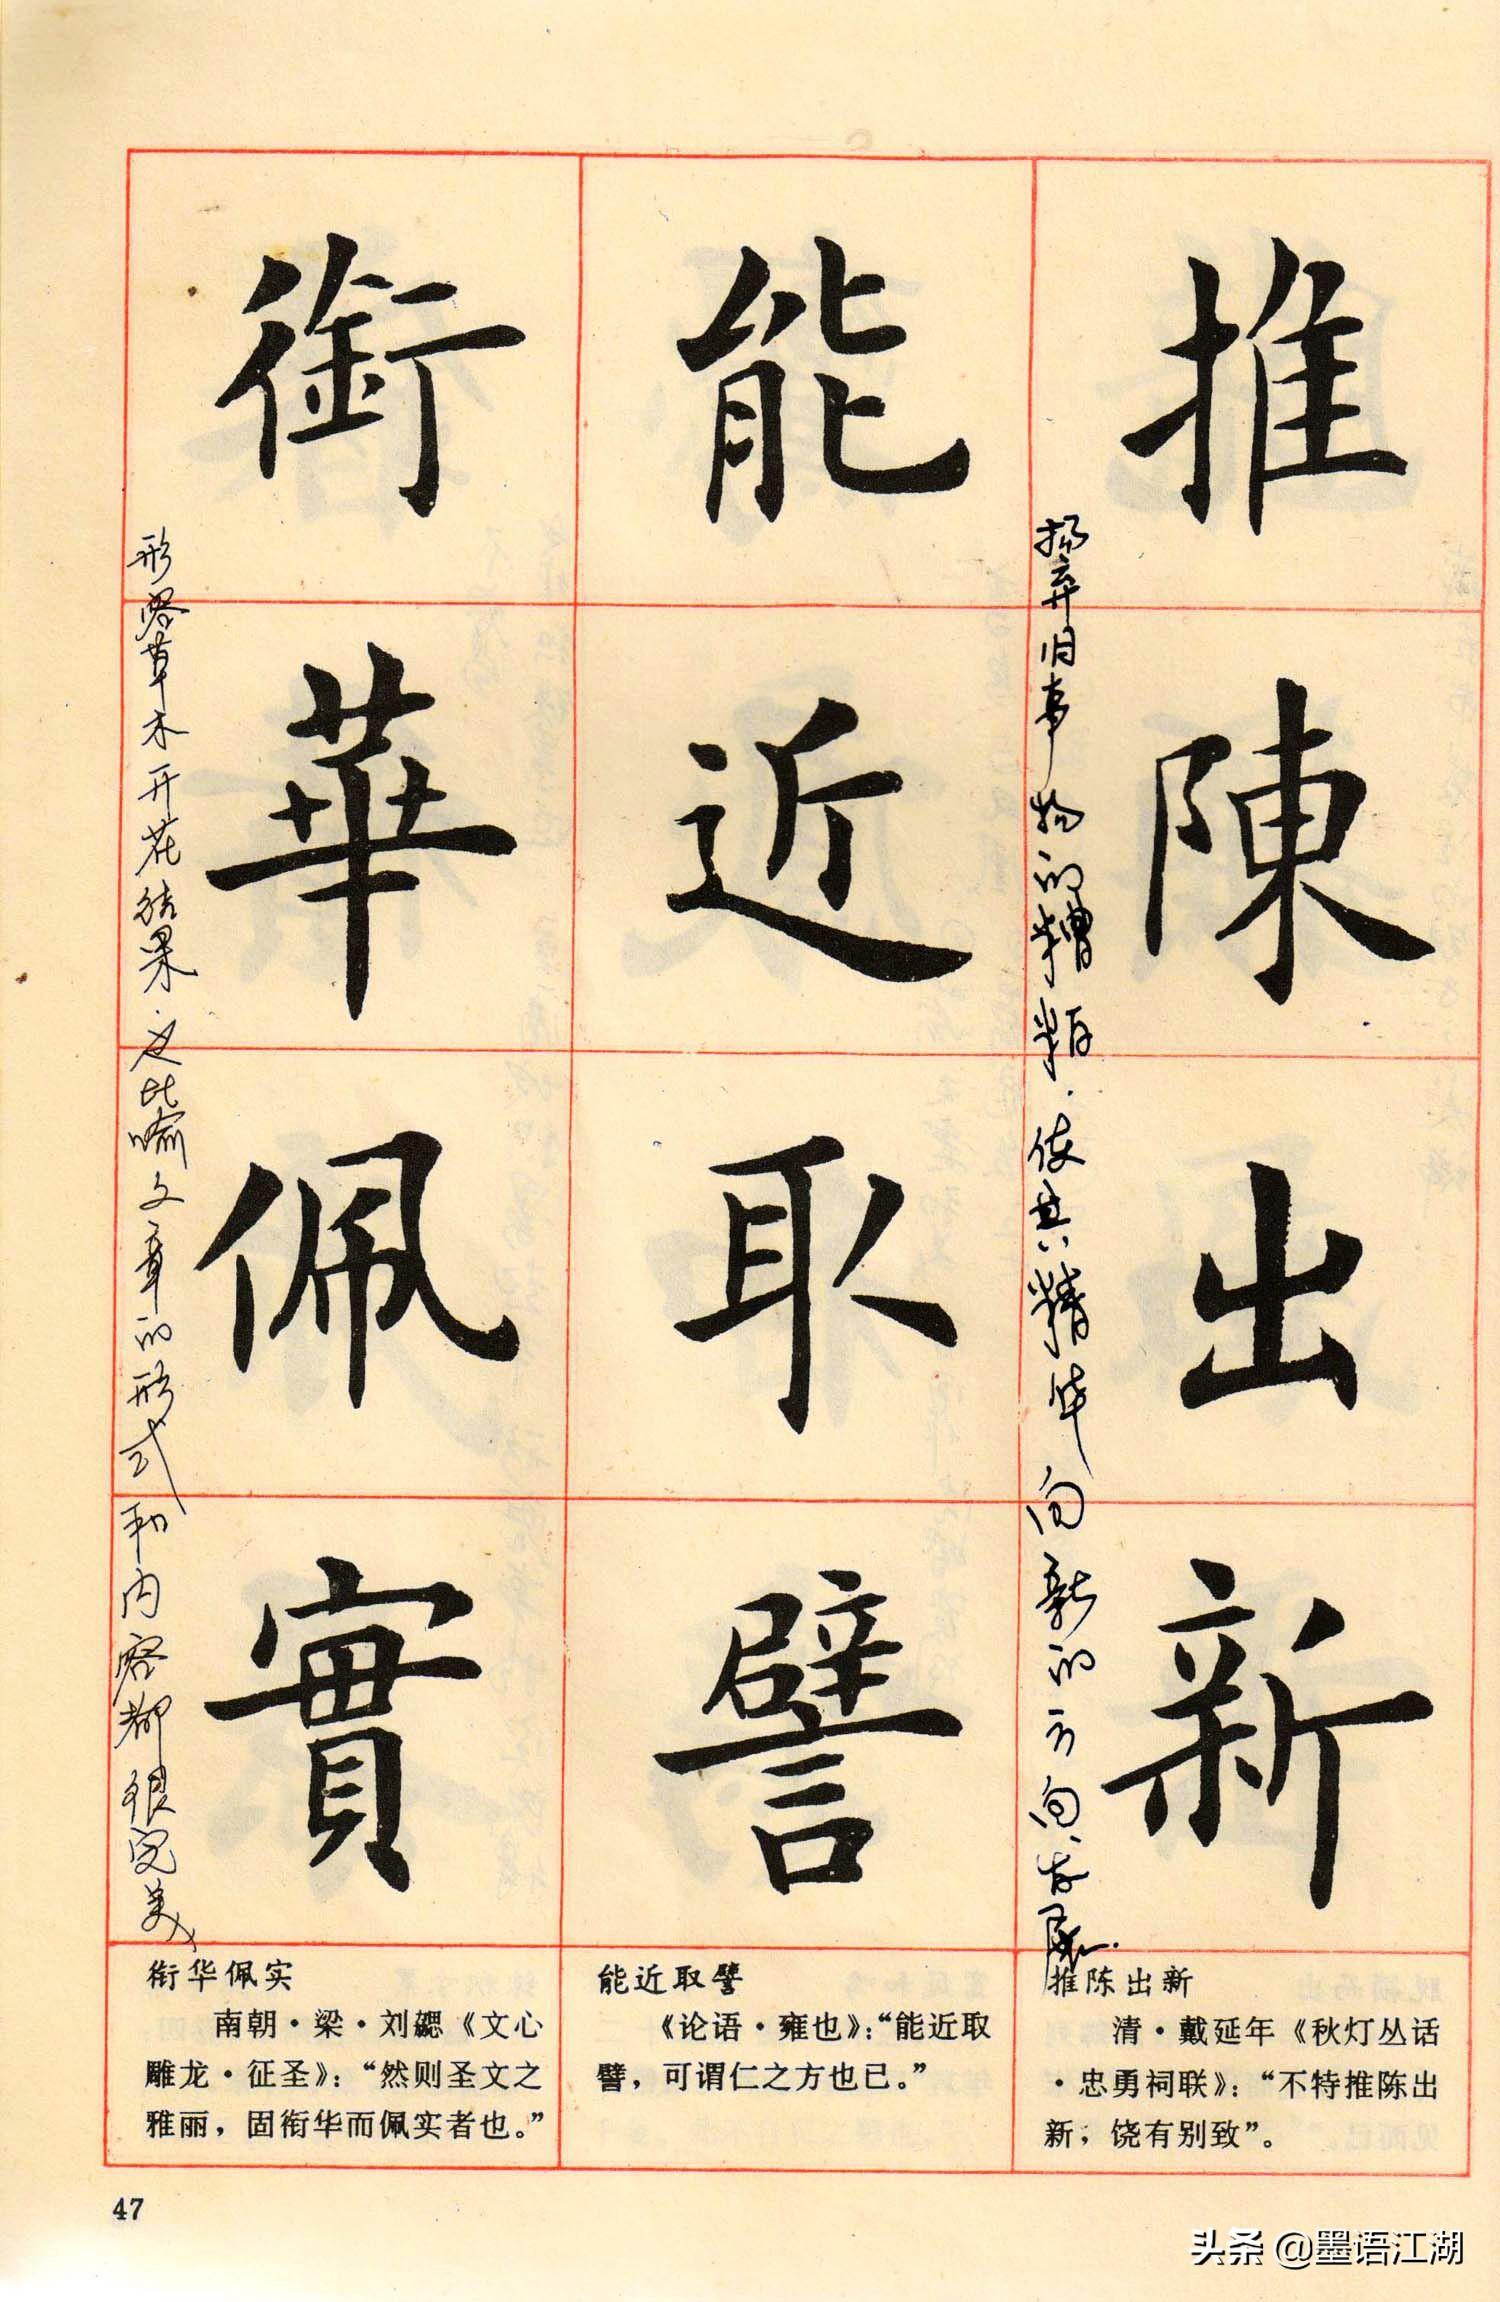 推陳出新
扬弃旧事物的糟粕.使其精华向新的方向发展.
能近取譬
銜華佩實
形容草木开花结果.又比喻文章的形式和内容都很完美
推陈出新
清·戴延年《秋灯丛话
·忠勇祠联》：“不特推陈出
新；饶有别致”。
能近取譬
《论语·雍也》：“能近取
譬，可谓仁之方也已。”
衔华佩实
南朝·梁·刘勰《文心
雕龙·征圣》：“然则圣文之
雅丽，固衔华而佩实者也。”
47
头条 @墨语江湖